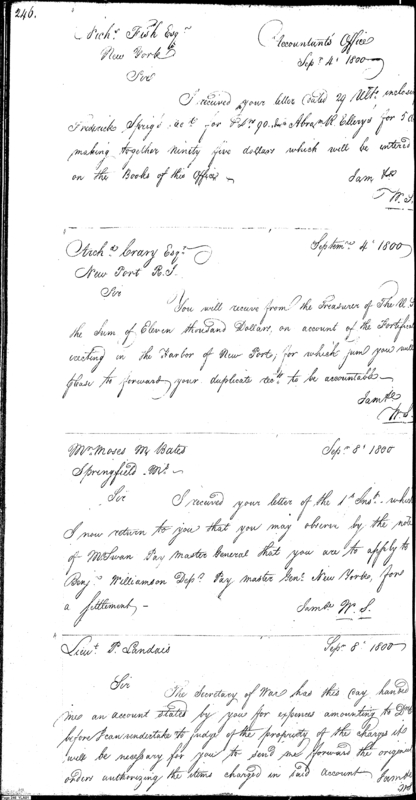 246.
Nich.s Fish Esq.r
New York
Sir
Accountants Office
Sep.r 4.t 1800
I received your letter dated 29 Ulto. inclosi
Frederick Sprig's rect for 90. Abra.m R. Ellery's for 5
making together Ninety five dollars which will be entered
on the Books of this Office
I am
W. S.
Arch.d Crary Esq.r
New Port R. I.
Septem.r 4.t 1800
Sir
You will receive from the Treasurer of the U. S
the Sum of Eleven thousand Dollars, on account of the Fortificat
erecting in the Harbor of New Port, for which sum you will
please to forward your duplicate rec.ts to be accountable
I am &c
W. S.
Mr. Moses M. Bates
Springfield M.s
Sep.r 8.t 1800
Sir
I received your letter of the 1.st Inst. which
I now return to you that you may observe by the note
of Mr. Swan Pay Master General that you are to apply to
Benj.n Williamson Dep.y Pay master Gen.l New York, for
a Settlement
I am &c W. S.
Lieu.t P. Landais
Sep.r 8.t 1800
Sir
The Secretary of War has this day handed
me an account stated by you for expences amounting to
before I can undertake to judge of the propriety of the charges it
will be necessary for you to send me forward the original
orders authorizing the items charged in said account
I am &c